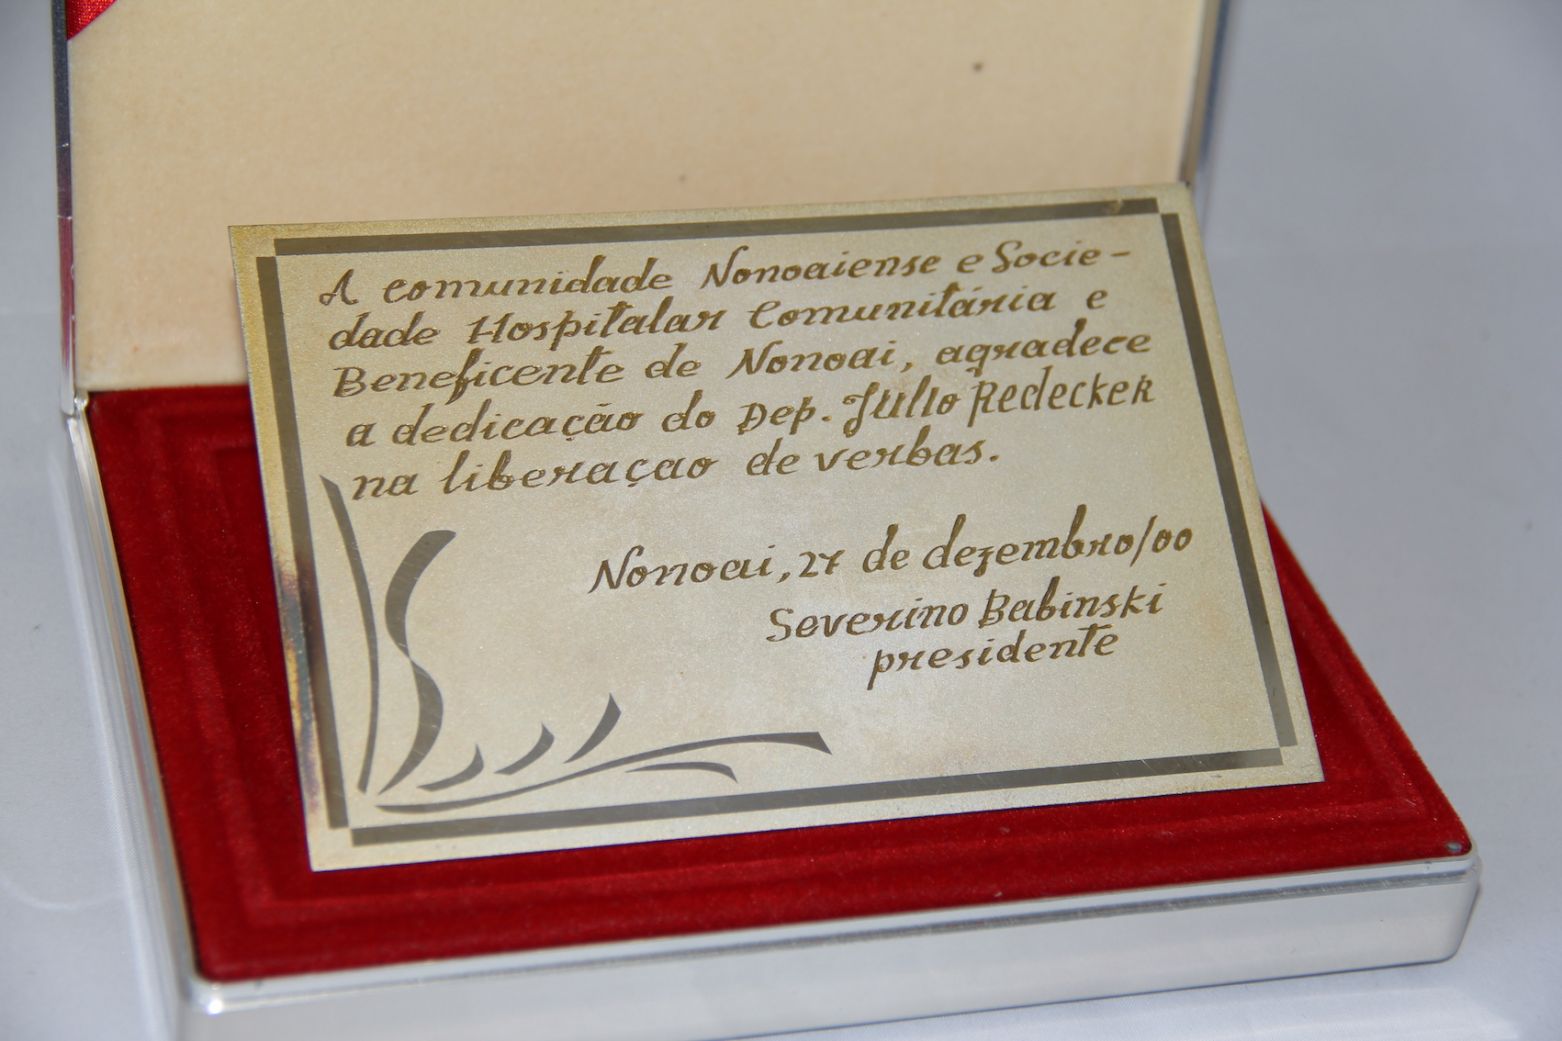 A comunidade Nonoaiense e Socie-
dade Hospitalar Comunitária e
Beneficente de Nonoai, agradece
a dedicação do Dep. Júlio Redecker
na liberaçao de verbas.
Nonoai, 27 de dezembro/00
Severino Babinski
presidente